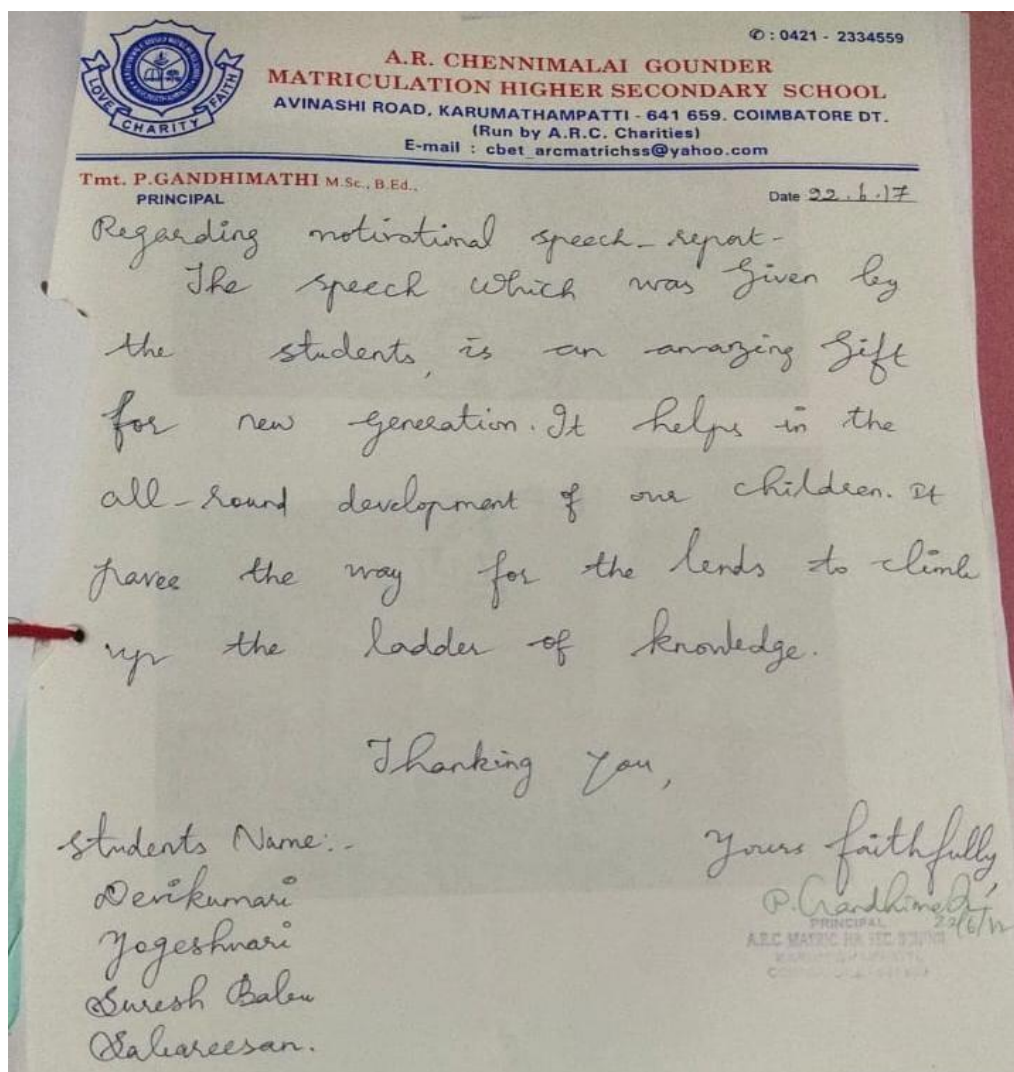 ✆ : 0421 - 2334559
A.R. CHENNIMALAI GOUNDER
MATRICULATION HIGHER SECONDARY SCHOOL
AVINASHI ROAD, KARUMATHAMPATTI - 641 659. COIMBATORE DT.
(Run by A.R.C. Charities)
E-mail : cbet_arcmatrichss@yahoo.com
LOVE CHARITY FAITH
Tmt. P.GANDHIMATHI M.Sc., B.Ed.,
PRINCIPAL
Date 22.6.17
Regarding motivational speech - report -
The speech which was given by
the students, is an amazing gift
for new generation. It helps in the
all-round development of our children. It
paves the way for the lends to climb
up the ladder of knowledge.
Thanking you,
Students Name:-
Devikumari
Yogeshwari
Suresh Babu
Sabareesan.
Yours faithfully,
P. Gandhimathi
PRINCIPAL
A.R.C MATRIC HR SEC SCHOOL